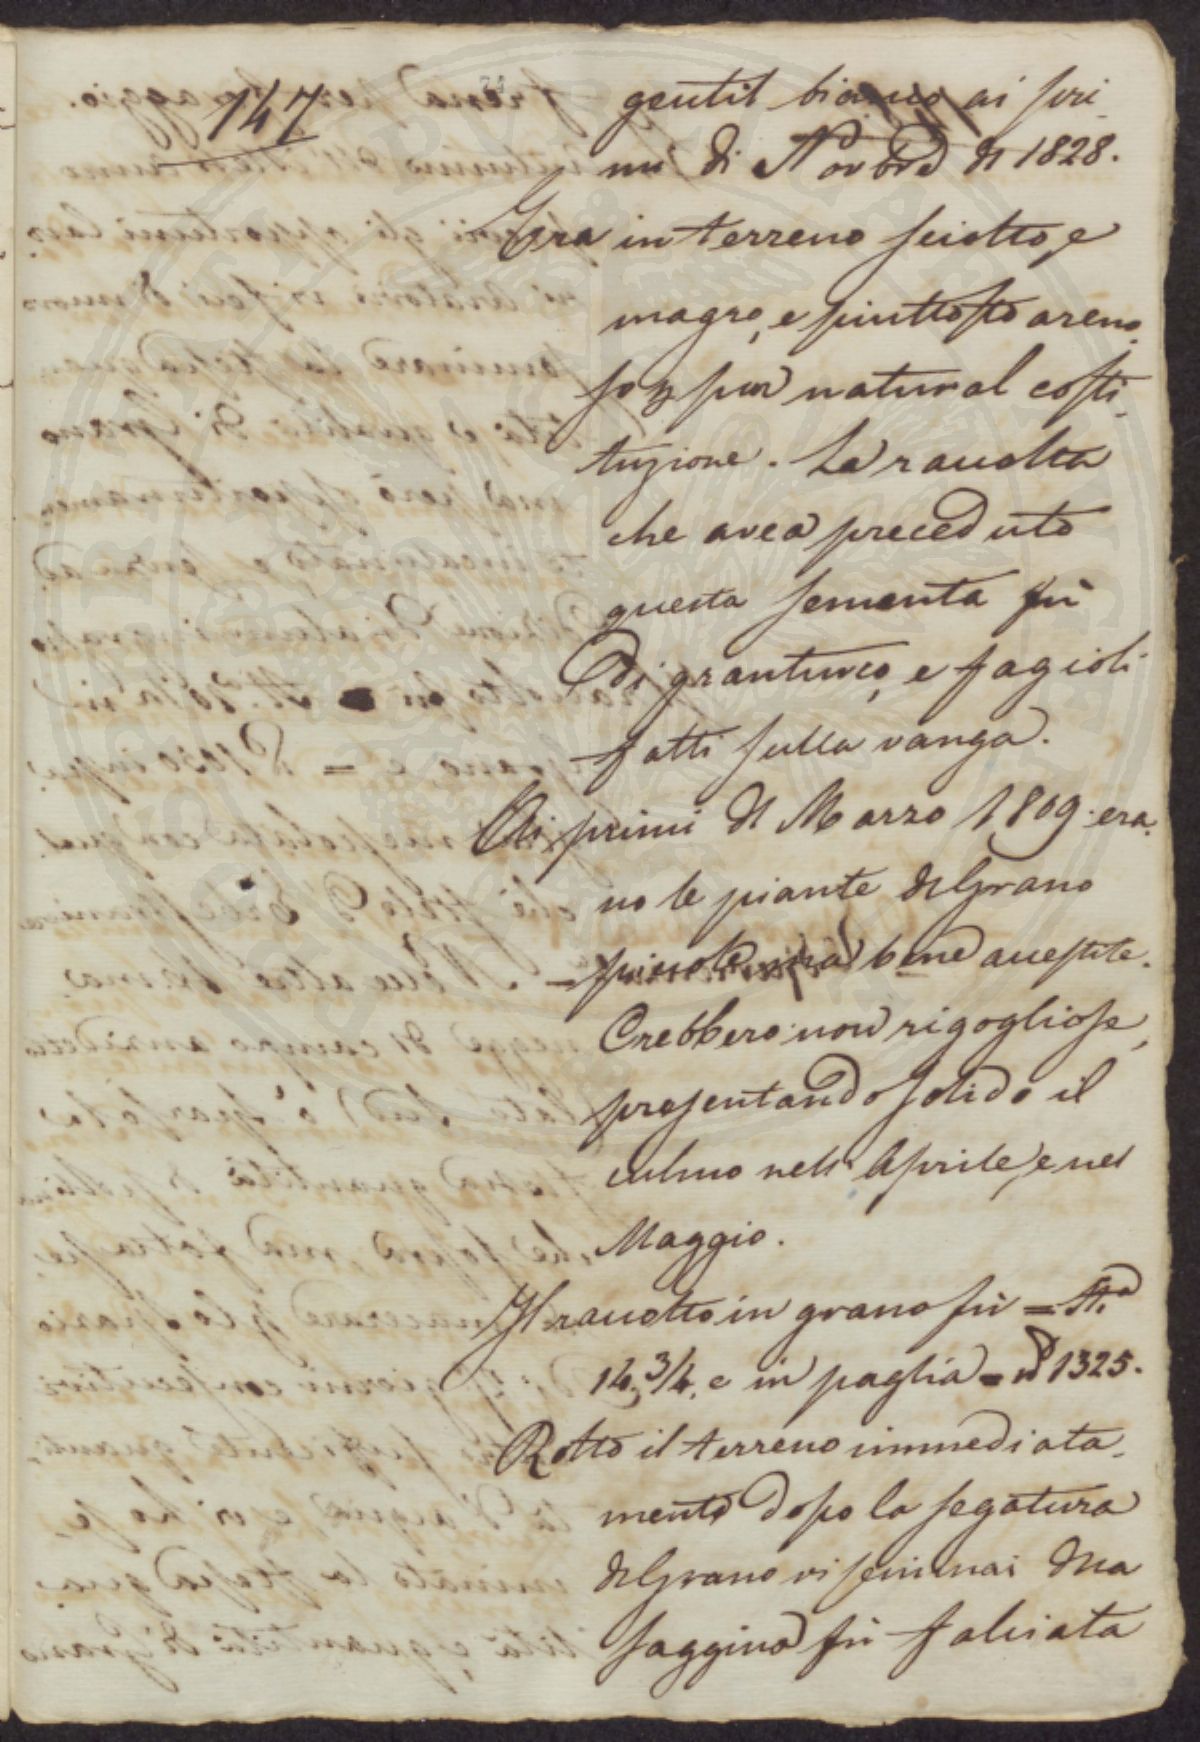 147
gentil bianco ai pri-
mi di Novbre dl 1828.
Era in terreno sciolto, e
magro, e piuttosto areno-
so per sua natural costi-
tuzione. La raccolta
che avea preceduto
questa sementa fù
di granturco, e fagioli
fatti sulla vanga.
Ai primi dl Marzo 1809. era-
no le piante dl Grano
piccole ma bene accestite.
Crebbero non rigogliose,
presentando solido il
culmo nell' Aprile, e nel
Maggio.
Il raccolto in grano fù = St.a
14. 3/4, e in paglia = 1325.
Rotto il terreno immediata-
mente dopo la segatura
dl Grano vi seminai dlla
saggina fù falciata